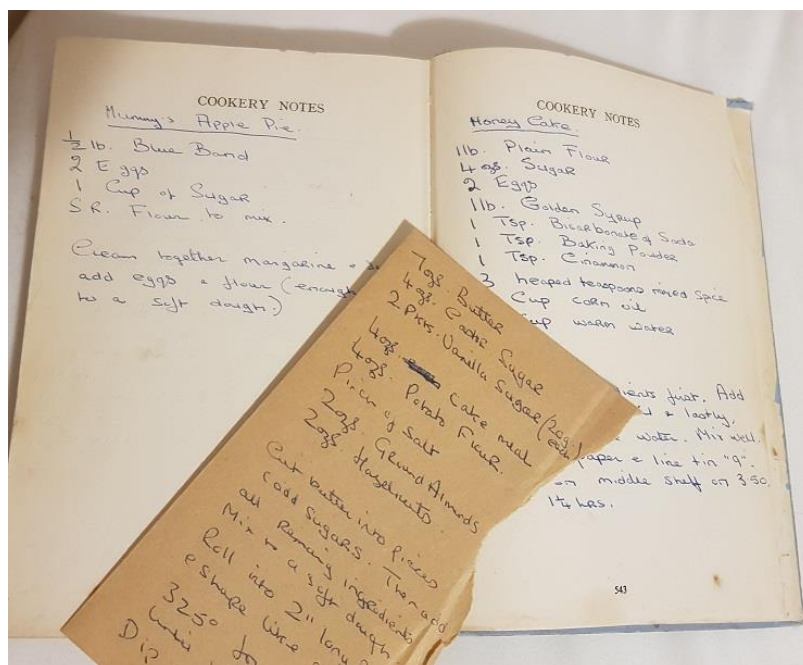 COOKERY NOTES
Mummy's Apple Pie.
½ lb. Blue Band
2 Eggs
1 Cup of Sugar
S.R. Flour to mix.
Cream together margarine +
add eggs + flour (enough
to a soft dough.)
COOKERY NOTES
Honey Cake.
1lb. Plain Flour
4ozs. Sugar
2 Eggs
1lb. Golden Syrup
1 Tsp. Bicarbonate of Soda
1 Tsp. Baking Powder
1 Tsp. Cinamon
3 heaped teaspoons mixed spice
Cup corn oil
Cup warm water
first. Add
+ lastly,
water. Mix well.
paper + line tin "9".
on middle shelf on 350.
1¼ hrs.
543
7ozs. Butter
4ozs. Castor Sugar
2 Pkts. Vanilla Sugar (20g. each)
4ozs. Cake meal
4ozs. Potato Flour.
Pinch of Salt
2ozs. Ground Almonds
2ozs. Hazelnuts.
Cut butter into pieces
(add sugars. Then add
all remaing ingredients
Mix to a soft dough
Roll into 2" long
+ shape like
325° for
until
Dip